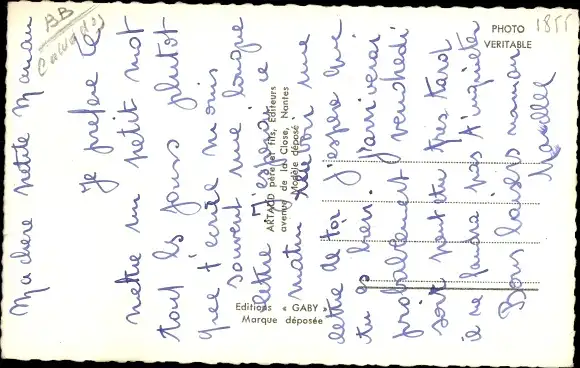 BB
Calvados
1855
PHOTO
VERITABLE
Ma chere petite Maman
Je prefere te
mettre un petit mot
tout les jours plutot
que t'ecrire moins
souvent une longue
lettre J'espere ce
matin une
lettre de toi j'espere que
tu es bien. J'arriverai
probablement vendredi
soit peut etre tres tard
il ne faudra pas t'inquieter
Bons baisers maman
ARTAUD père et fils, Editeurs
avenue de la Close, Nantes
Modèle déposé
Editions « GABY »
Marque déposée